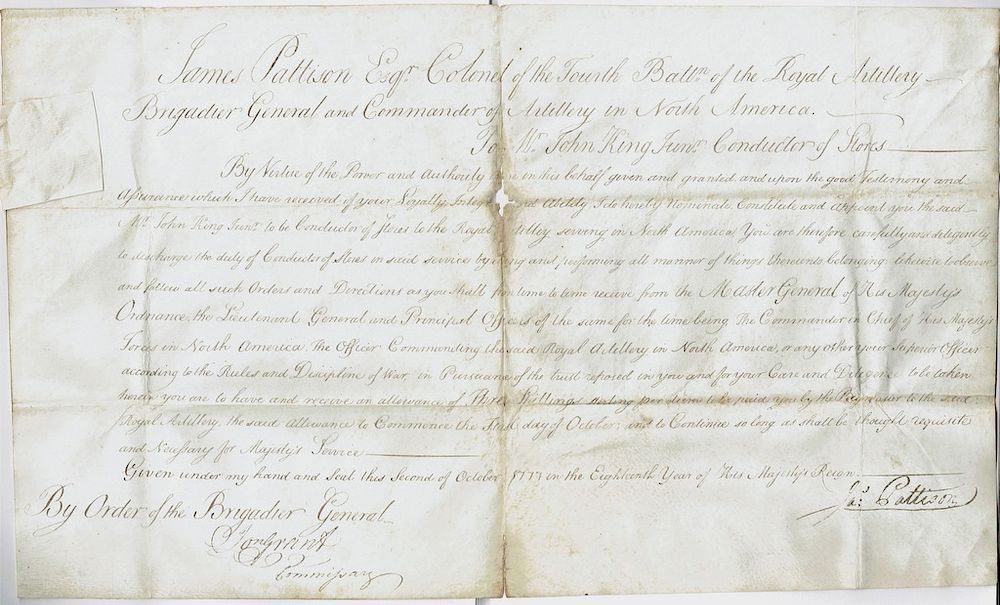 James Pattison Esqr. Colonel of the Fourth Battn. of the Royal Artillery
Brigadier General and Commander of Artillery in North America.
To Mr. John King Junr. Conductor of Stores
By Virtue of the Power and Authority in this behalf given and granted and upon the good Testimony and
Assurance which I have received of your Loyalty, and Ability, I do hereby Nominate, Constitute and Appoint you the said
Mr. John King Junr. to be Conductor of Stores to the Royal serving in North America, You are therefore carefully and
to discharge the duty of Conductor of Stores in said service by and performing all manner of things thereunto belonging likewise to observe
and follow all such Orders and Directions as you shall from time to time receive from the Master General of His Majesty's
Ordnance, the Lieutenant General and Principal Officers of the same for the time being The Commander in Chief of His Majesty's
Forces in North America The Officer Commanding the said Royal Artillery in North America, or any other your Superior Officer
according to the Rules and Discipline of War, in Pursuance of the trust reposed in you and for your Care and Diligence to be taken
herein you are to have and receive an allowance of Shillings sterling per diem to be paid you by the Paymaster to the said
Royal Artillery, the said Allowance to Commence the day of October, and to Continue so long as shall be thought requisite
and Necessary for Majesty's Service
Given under my hand and Seal this Second of October 1777 in the Eighteenth Year of His Majesty's Reign
Jas. Pattison
By Order of the Brigadier General
Grant
Commissary